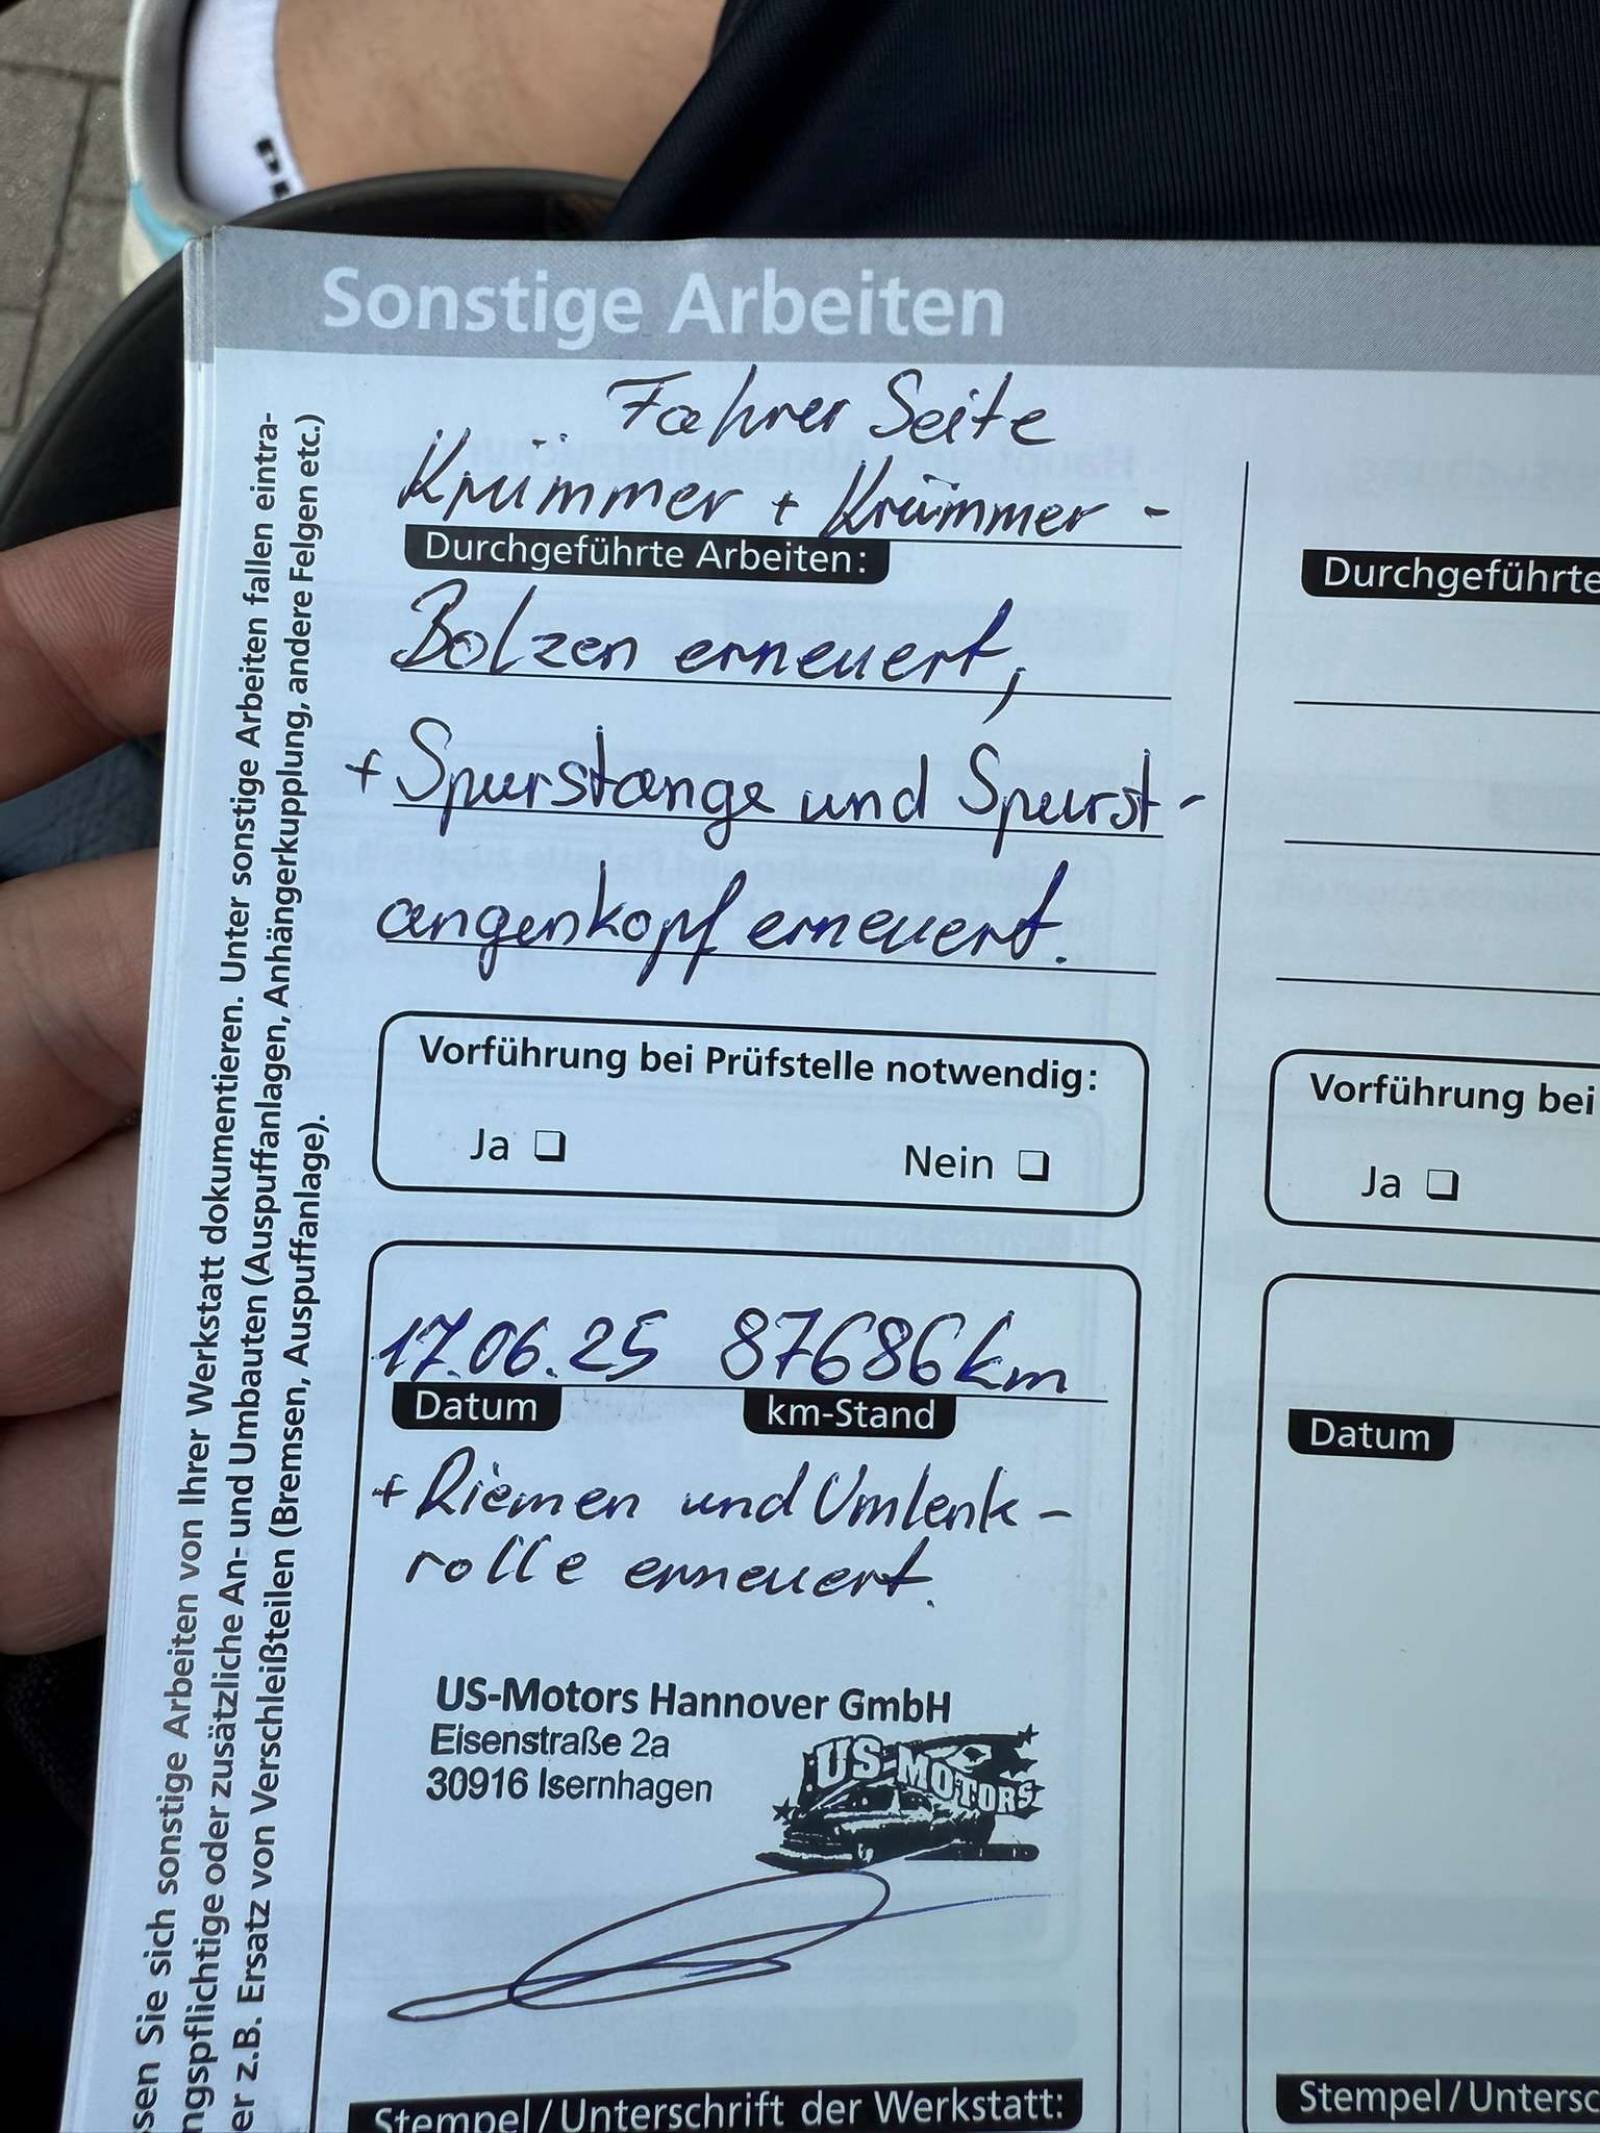 Sonstige Arbeiten
Fahrer Seite
Krümmer + Krümmer-
Durchgeführte Arbeiten:
Bolzen erneuert,
+ Spurstange und Spurst-
angenkopf erneuert.
Vorführung bei Prüfstelle notwendig:
Ja ❏ Nein ❏
17.06.25 87686km
Datum km-Stand
+ Riemen und Umlenk-
rolle erneuert.
US-Motors Hannover GmbH
Eisenstraße 2a
30916 Isernhagen
US-MOTORS
Stempel/Unterschrift der Werkstatt:
Durchgeführte
Vorführung bei
Ja ❏
Datum
Stempel/Untersc
sen Sie sich sonstige Arbeiten von Ihrer Werkstatt dokumentieren. Unter sonstige Arbeiten fallen eintra-
ngspflichtige oder zusätzliche An- und Umbauten (Auspuffanlagen, Anhängerkupplung, andere Felgen etc.)
er z.B. Ersatz von Verschleißteilen (Bremsen, Auspuffanlage).